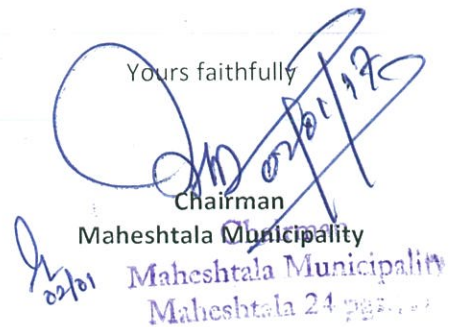 Yours faithfully
02/01/17
Chairman
Maheshtala Municipality
Chairman
Maheshtala Municipality
02/01
Maheshtala 24